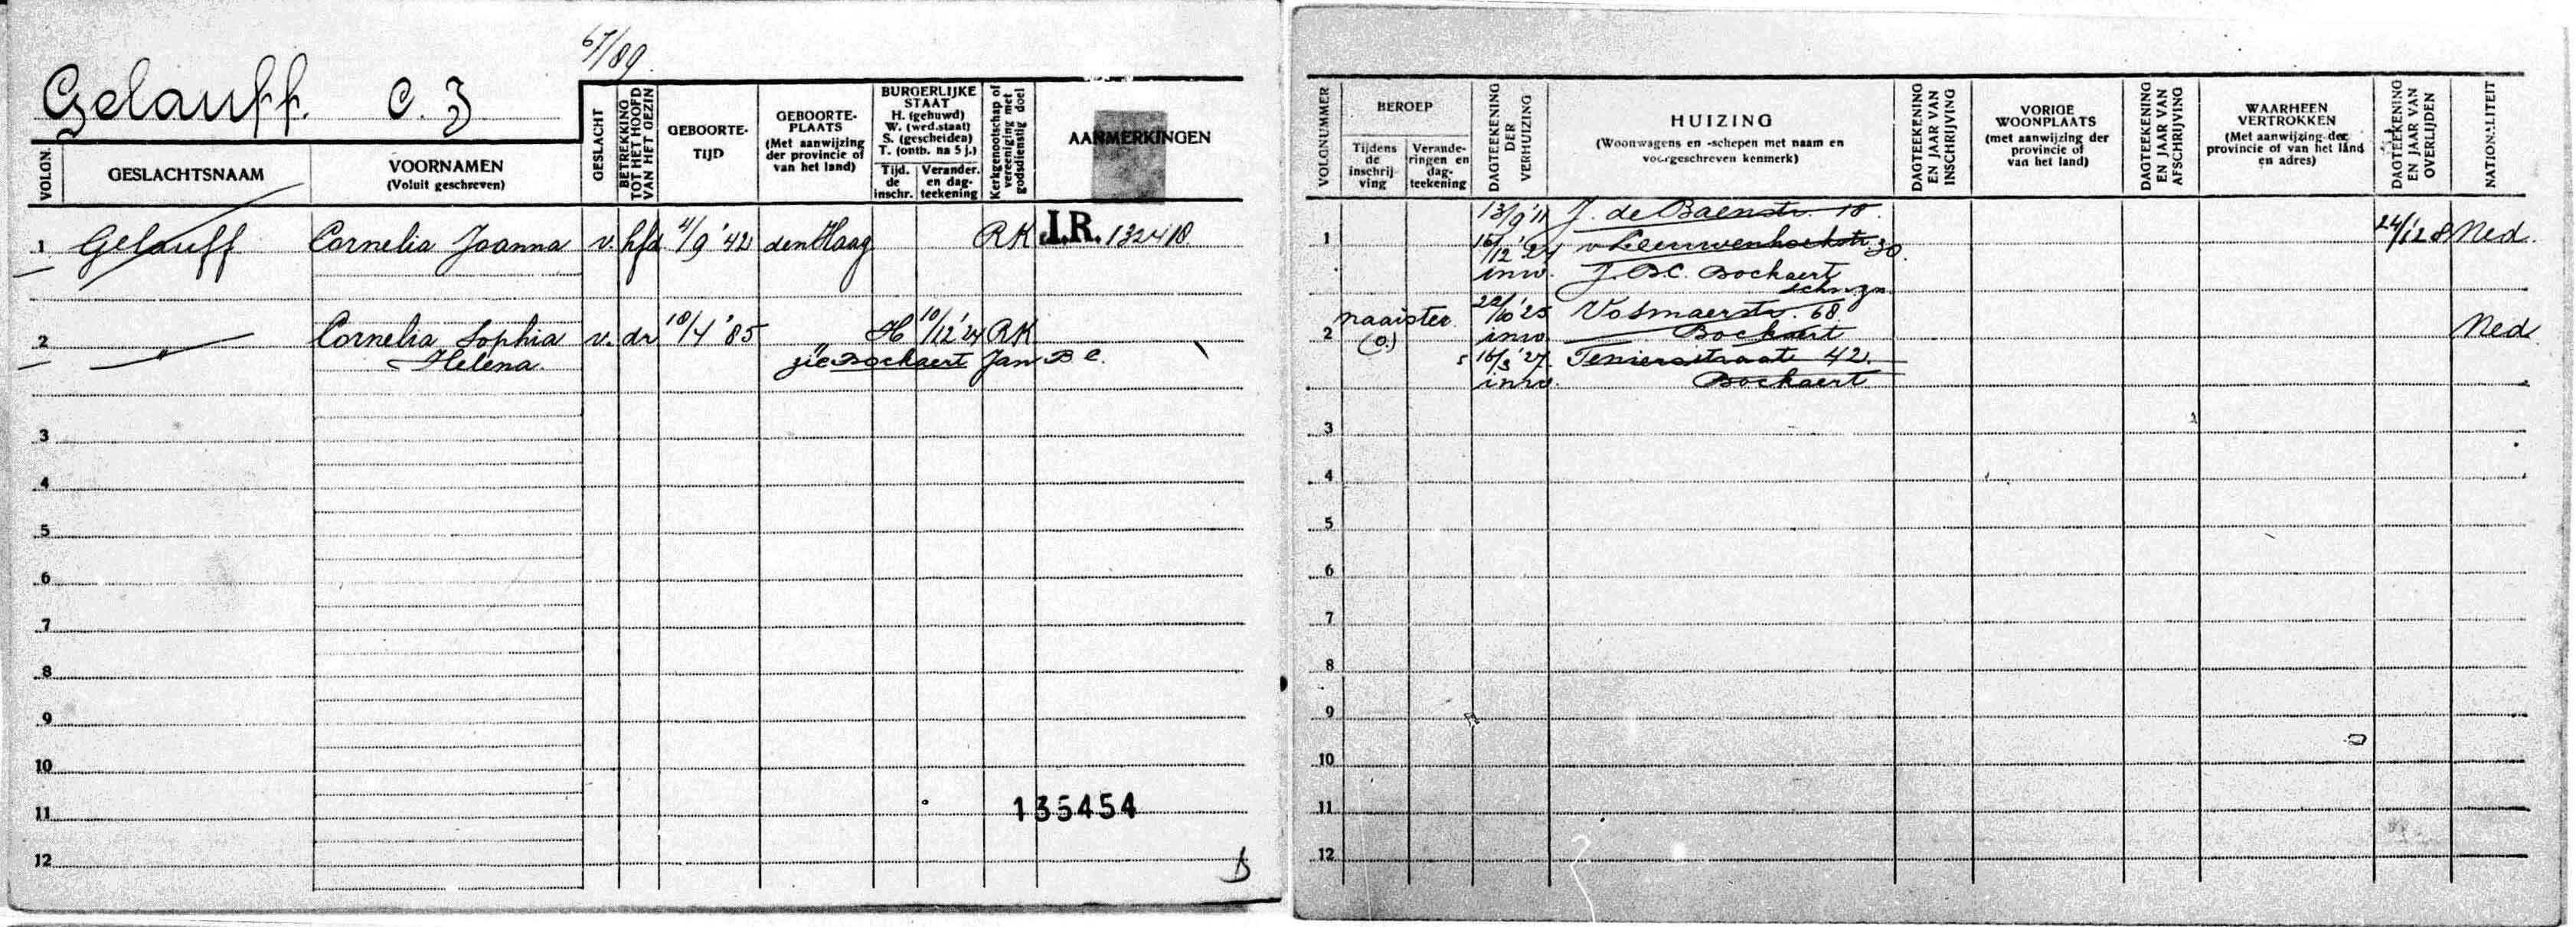 67/89.
Gelauff. C. J
VOLGN.
GESLACHTSNAAM
VOORNAMEN
(Voluit geschreven)
GESLACHT
BETREKKING
TOT HET HOOFD
VAN HET GEZIN
GEBOORTE-
TIJD
GEBOORTE-
PLAATS
(Met aanwijzing
der provincie of
van het land)
BURGERLIJKE
STAAT
H. (gehuwd)
W. (wed.staat)
S. (gescheiden)
T. (ontb. na 5 j.)
Tijd.
de
inschr.
Verander.
en dag-
teekening
Kerkgenootschap of
vereeniging met
godsdienstig doel
AANMERKINGEN
1 Gelauff Cornelia Joanna v. hfd 11/9 '42 den Haag RK J.R. 132418
2 Cornelia Sophia v. dr 18/4 '85 H 10/12 '24 RK
Helena. zie Bockaert Jan B C.
3
4
5
6
7
8
9
10
11 135454
12
VOLGNUMMER
BEROEP
Tijdens
de
inschrij-
ving
Verande-
ringen en
dag-
teekening
DAGTEEKENING
DER
VERHUIZING
HUIZING
(Woonwagens en -schepen met naam en
voorgeschreven kenmerk)
DAGTEEKENING
EN JAAR VAN
INSCHRIJVING
VORIGE
WOONPLAATS
(met aanwijzing der
provincie of
van het land)
DAGTEEKENING
EN JAAR VAN
AFSCHRIJVING
WAARHEEN
VERTROKKEN
(Met aanwijzing der
provincie of van het land
en adres)
DAGTEEKENING
EN JAAR VAN
OVERLIJDEN
NATIONALITEIT
13/9 '11 J. de Baenstr. 18.
1 16/12 '24 v Leeuwenhoekstr. 30. 24/1 28 Ned.
inw. J. B.C. Bockaert
schnzn
naaister 22/10 '25 Vosmaerstr. 68
2 (o.) inw. Bockaert Ned
16/3 '27. Teniersstraat 42.
inw. Bockaert
3
4
5
6
7
8
9
10
11
12